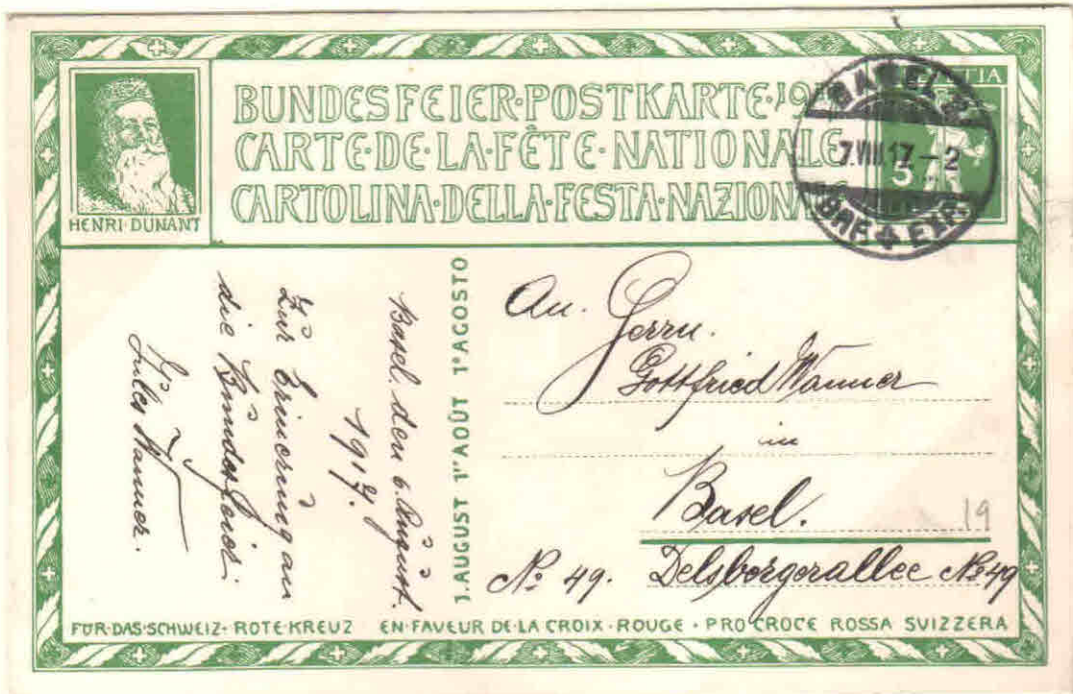 HENRI·DUNANT
BUNDESFEIER·POSTKARTE·19
CARTE·DE·LA·FÊTE·NATIONALE
CARTOLINA·DELLA·FESTA·NAZIONA
HELVETIA
5
BASEL 2
7.VIII.17–2
EXP.
1.AUGUST 1ᴱᴿAOÛT 1ºAGOSTO
Basel. den 6. August.
1917.
Zur Erinerung an
die
Jules Wanner.
An. Herrn.
Gottfried Wanner
in
Basel.
19
No 49. Delsbergerallee No 49
FÜR·DAS·SCHWEIZ· ROTE·KREUZ EN·FAVEUR DE·LA CROIX·ROUGE · PRO CROCE ROSSA SVIZZERA